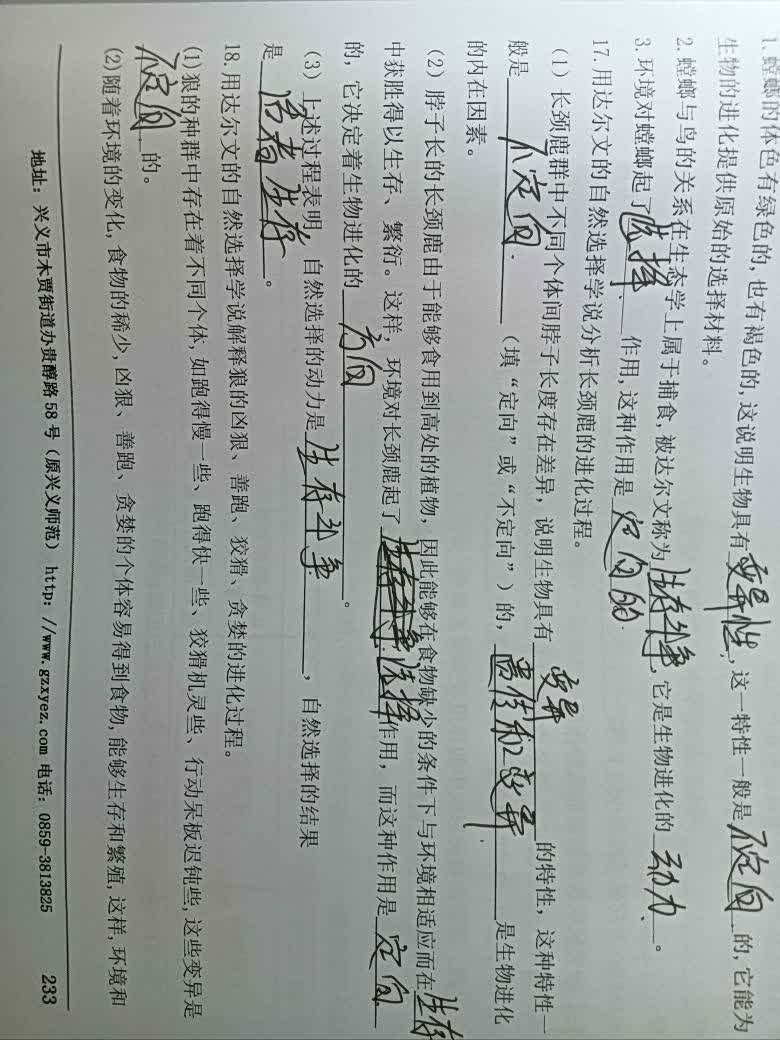 1. 螳螂的体色有绿色的,也有褐色的,这说明生物具有变异性,这一特性一般是不定向的,它能为
生物的进化提供原始的选择材料。
2. 螳螂与鸟的关系在生态学上属于捕食,被达尔文称为生存斗争,它是生物进化的动力。
3. 环境对螳螂起了选择作用,这种作用是定向的.
17. 用达尔文的自然选择学说分析长颈鹿的进化过程。
(1) 长颈鹿群中不同个体间脖子长度存在差异,说明生物具有变异的特性,这种特性一
般是不定向(填“定向”或“不定向”)的,遗传和变异是生物进化
的内在因素。
(2) 脖子长的长颈鹿由于能够食用到高处的植物,因此能够在食物缺少的条件下与环境相适应而在生存
中获胜得以生存、繁衍。这样,环境对长颈鹿起了选择作用,而这种作用是定向
的,它决定着生物进化的方向。
(3) 上述过程表明,自然选择的动力是生存斗争,自然选择的结果
是适者生存。
18. 用达尔文的自然选择学说解释狼的凶狠、善跑、狡猾、贪婪的进化过程。
(1) 狼的种群中存在着不同个体,如跑得慢一些、跑得快一些、狡猾机灵些、行动呆板迟钝些,这些变异是
不定向的。
(2) 随着环境的变化,食物的稀少,凶狠、善跑、贪婪的个体容易得到食物,能够生存和繁殖,这样,环境和
地址:兴义市木贾街道办贵醇路58号(原兴义师范) http://www.gzxyez.com 电话:0859-3813825 233